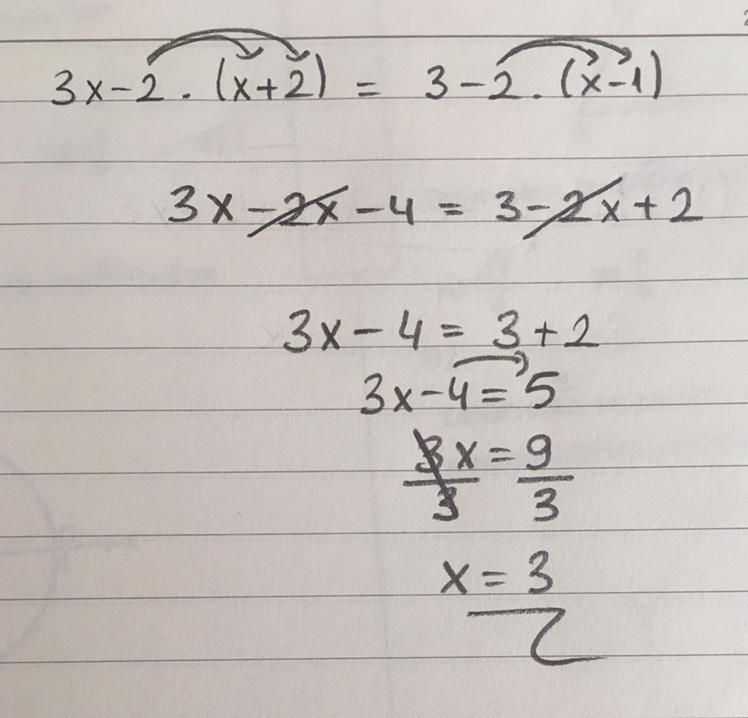 3x-2.(x+2) = 3-2.(x-1)
3x-2x-4 = 3-2x+2
3x-4 = 3+2
3x-4 = 5
3x = 9
3 3
x = 3